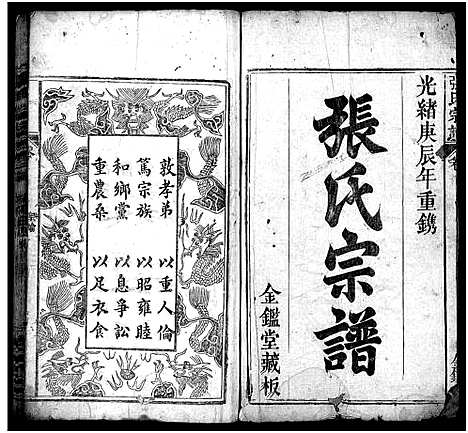 光緒庚辰年重鐫
張氏宗譜
金鑑堂藏板
敦孝弟 以重人倫
篤宗族 以昭雍睦
和鄉黨 以息爭訟
重農桑 以足衣食